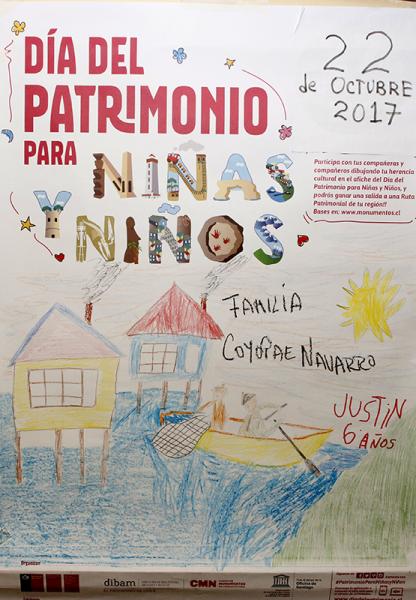 DÍA DEL
PATRIMONIO
PARA
NIÑAS
Y NIÑOS
22
de OCTUBRE
2017
Participa con tus compañeras y
compañeros dibujando tu herencia
cultural en el afiche del Día del
Patrimonio para Niñas y Niños, y
podrás ganar una salida a una Ruta
Patrimonial de tu región!!
Bases en: www.monumentos.cl
FAMILIA
COYOPAE NAVARRO
JUSTIN
6 AÑOS
Organizan
dibam
CMN
Oficina de
Santiago
#PatrimonioParaNiñasyNiños